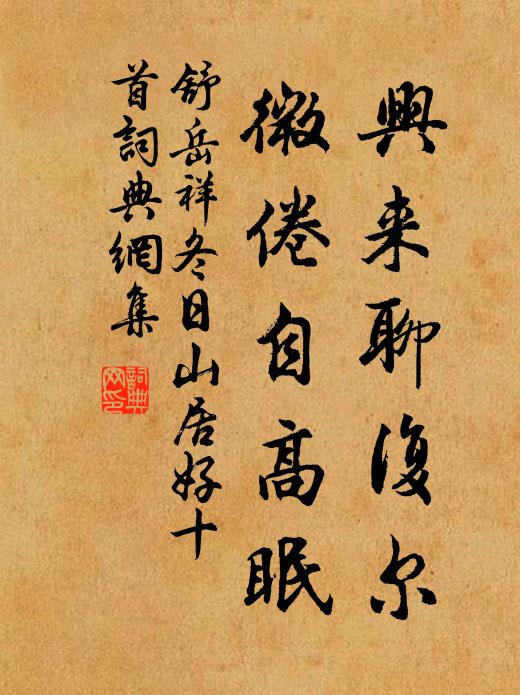 興来聊復尔
微倦自高眠
舒岳祥冬日山居好十
首詞典網集
詞典
网印